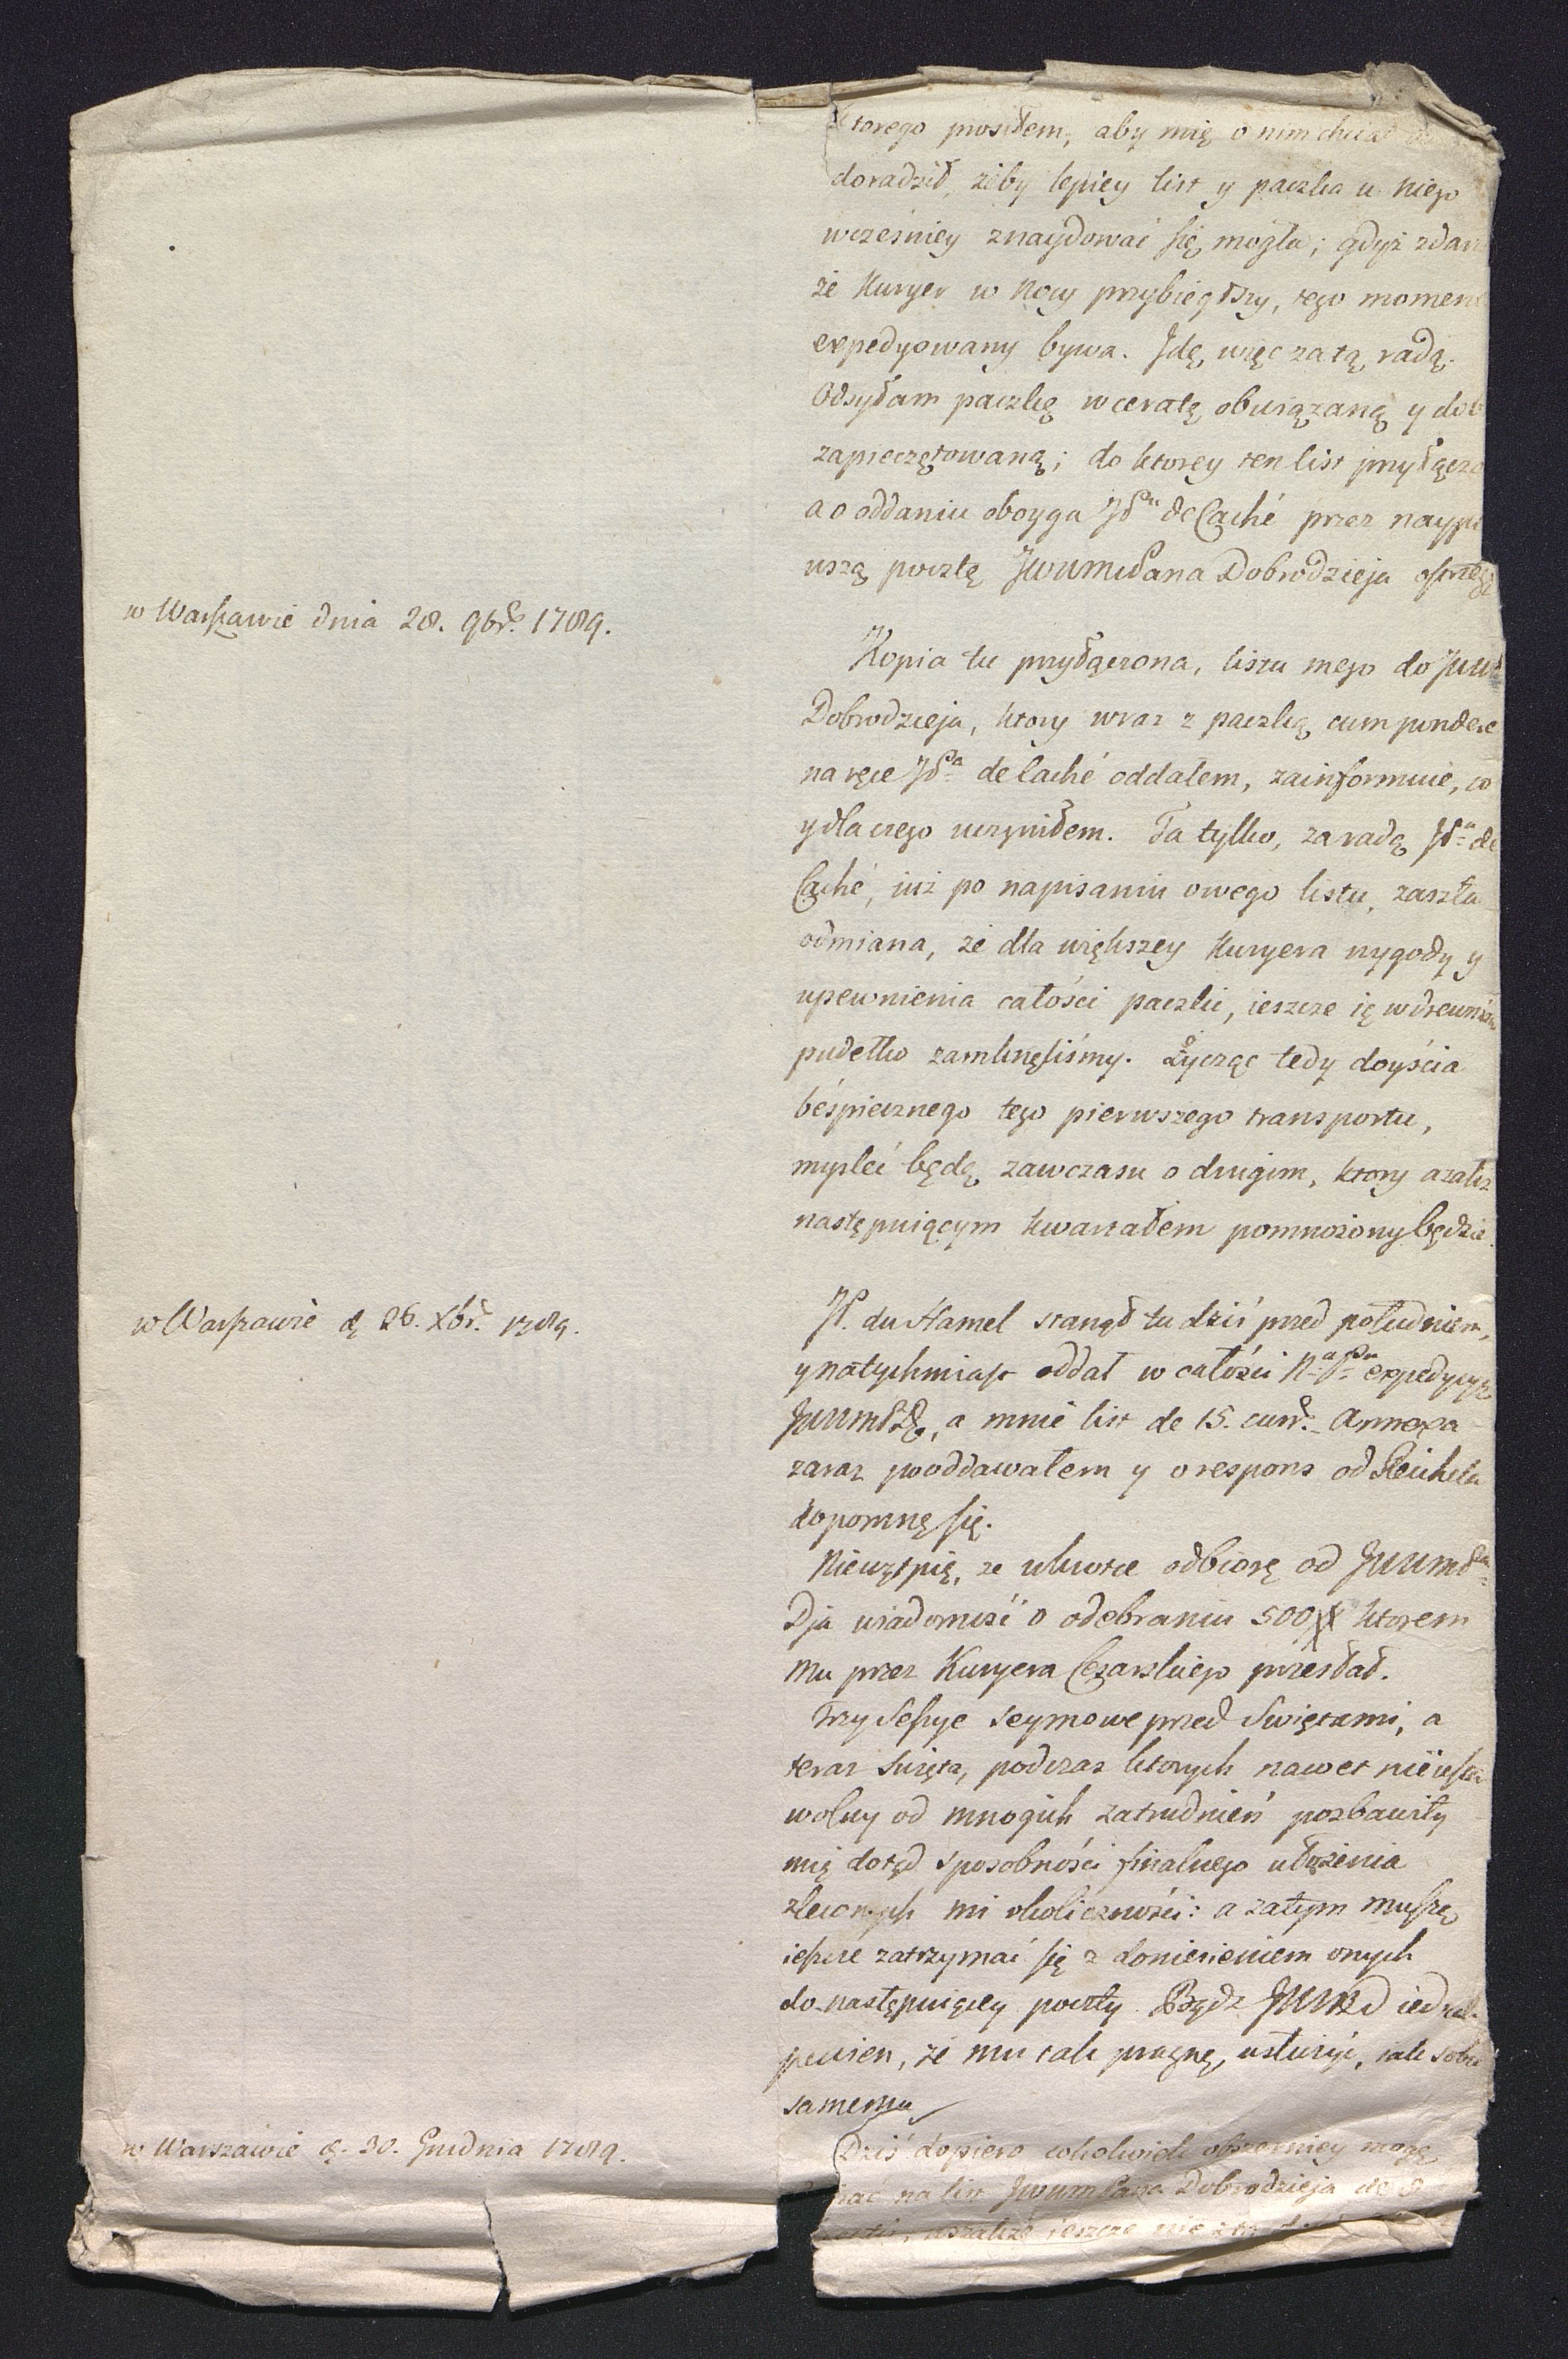 ktorego prosiłem, aby mię o nim chciał
doradził, żeby lepiey list y paczka u niego
wcześniey znaydować się mogła; gdyż
że Kuryer w nocy przybiegłszy, tego
expedyowany bywa. Idę więc za tą radą.
Odsyłam paczkę w ceratę obwiązaną y
zapieczętowaną; do ktorey ten list
a o oddaniu oboyga JPu de Caché przez
wszą pocztę JWWMPana Dobrodzieja
w Warszawie dnia 28. 9br. 1789.
Kopia tu przyłączona, listu mego do
Dobrodzieja, ktory wraz z paczką cum
na ręce JPa de Caché oddałem, zainformuie, co
y dla czego uczyniłem. Ta tylko, za radą JPa de
Caché, iuż po napisaniu owego listu, zaszła
odmiana, że dla większey Kuryera wygody y
upewnienia całości paczki, ieszcze ią w
pudełko zamknęliśmy. Życząc tedy doyścia
beśpiecznego tego pierwszego transportu,
mysleć będę zawczasu o drugim, ktory azaliż
następuiącym kwartałem pomnożony będzie.
w Warszawie d. 26. Xbr. 1789.
JP. du Hamel stanął tu dziś przed południem,
y natychmiast oddał w całości expedycyę
a mnie list de 15. curr. Annexa
zaraz pooddawałem y o respons od Reichela
dopomnę się.
Niewątpię, że wkrotce odbiorę od
Dja wiadomość o odebraniu 500 ktorem
mu przez Kuryera Cesarskiego przesłał.
Trzy Sessye Seymowe przed Swiętami, a
teraz Swięta, podczas ktorych nawet
wolny od mnogich zatrudnień pozbawiły
mię dotąd sposobności finalnego ułożenia
zleconych mi okoliczności: a zatym muszę
ieszcze zatrzymać się z doniesieniem onych
do następuiącey poczty. Bądź
pewien, że mu tak pragnę usłużyć, iak sobie
samemu
w Warszawie d. 30. Grudnia 1789.
Dziś dopiero cokolwiek obszerniey mogę
na list JWWMPana Dobrodzieja de
ieszcze nie